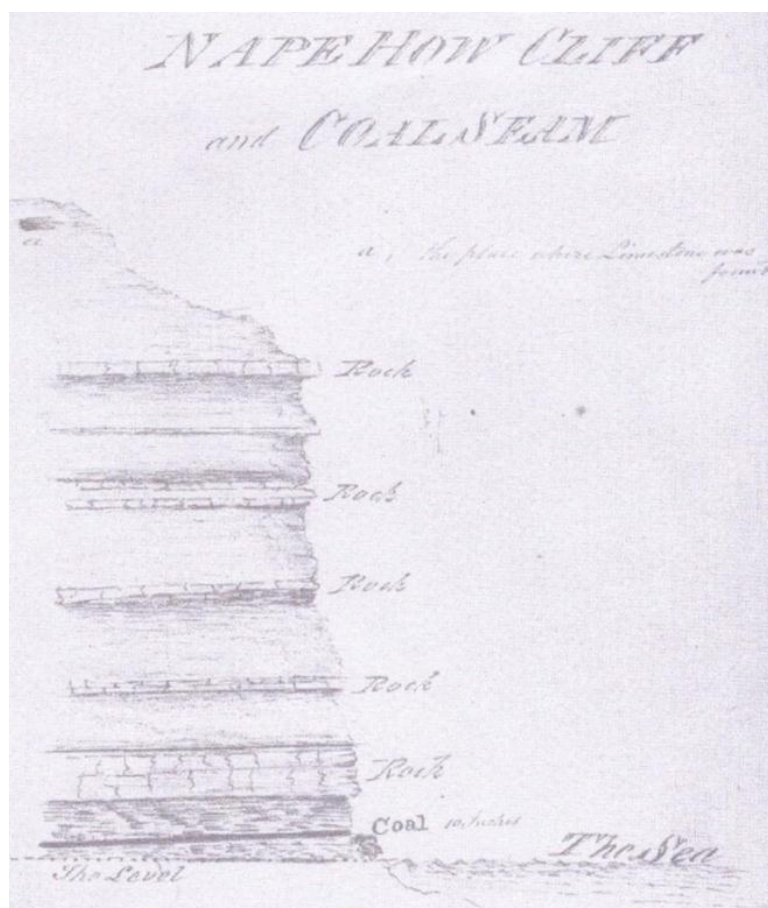 NAPE HOW CLIFF
and COAL SEAM
a
a, the place where Limestone was
found
Rock
Rock
Rock
Rock
Rock
Coal 10 inches
The Sea
The Level